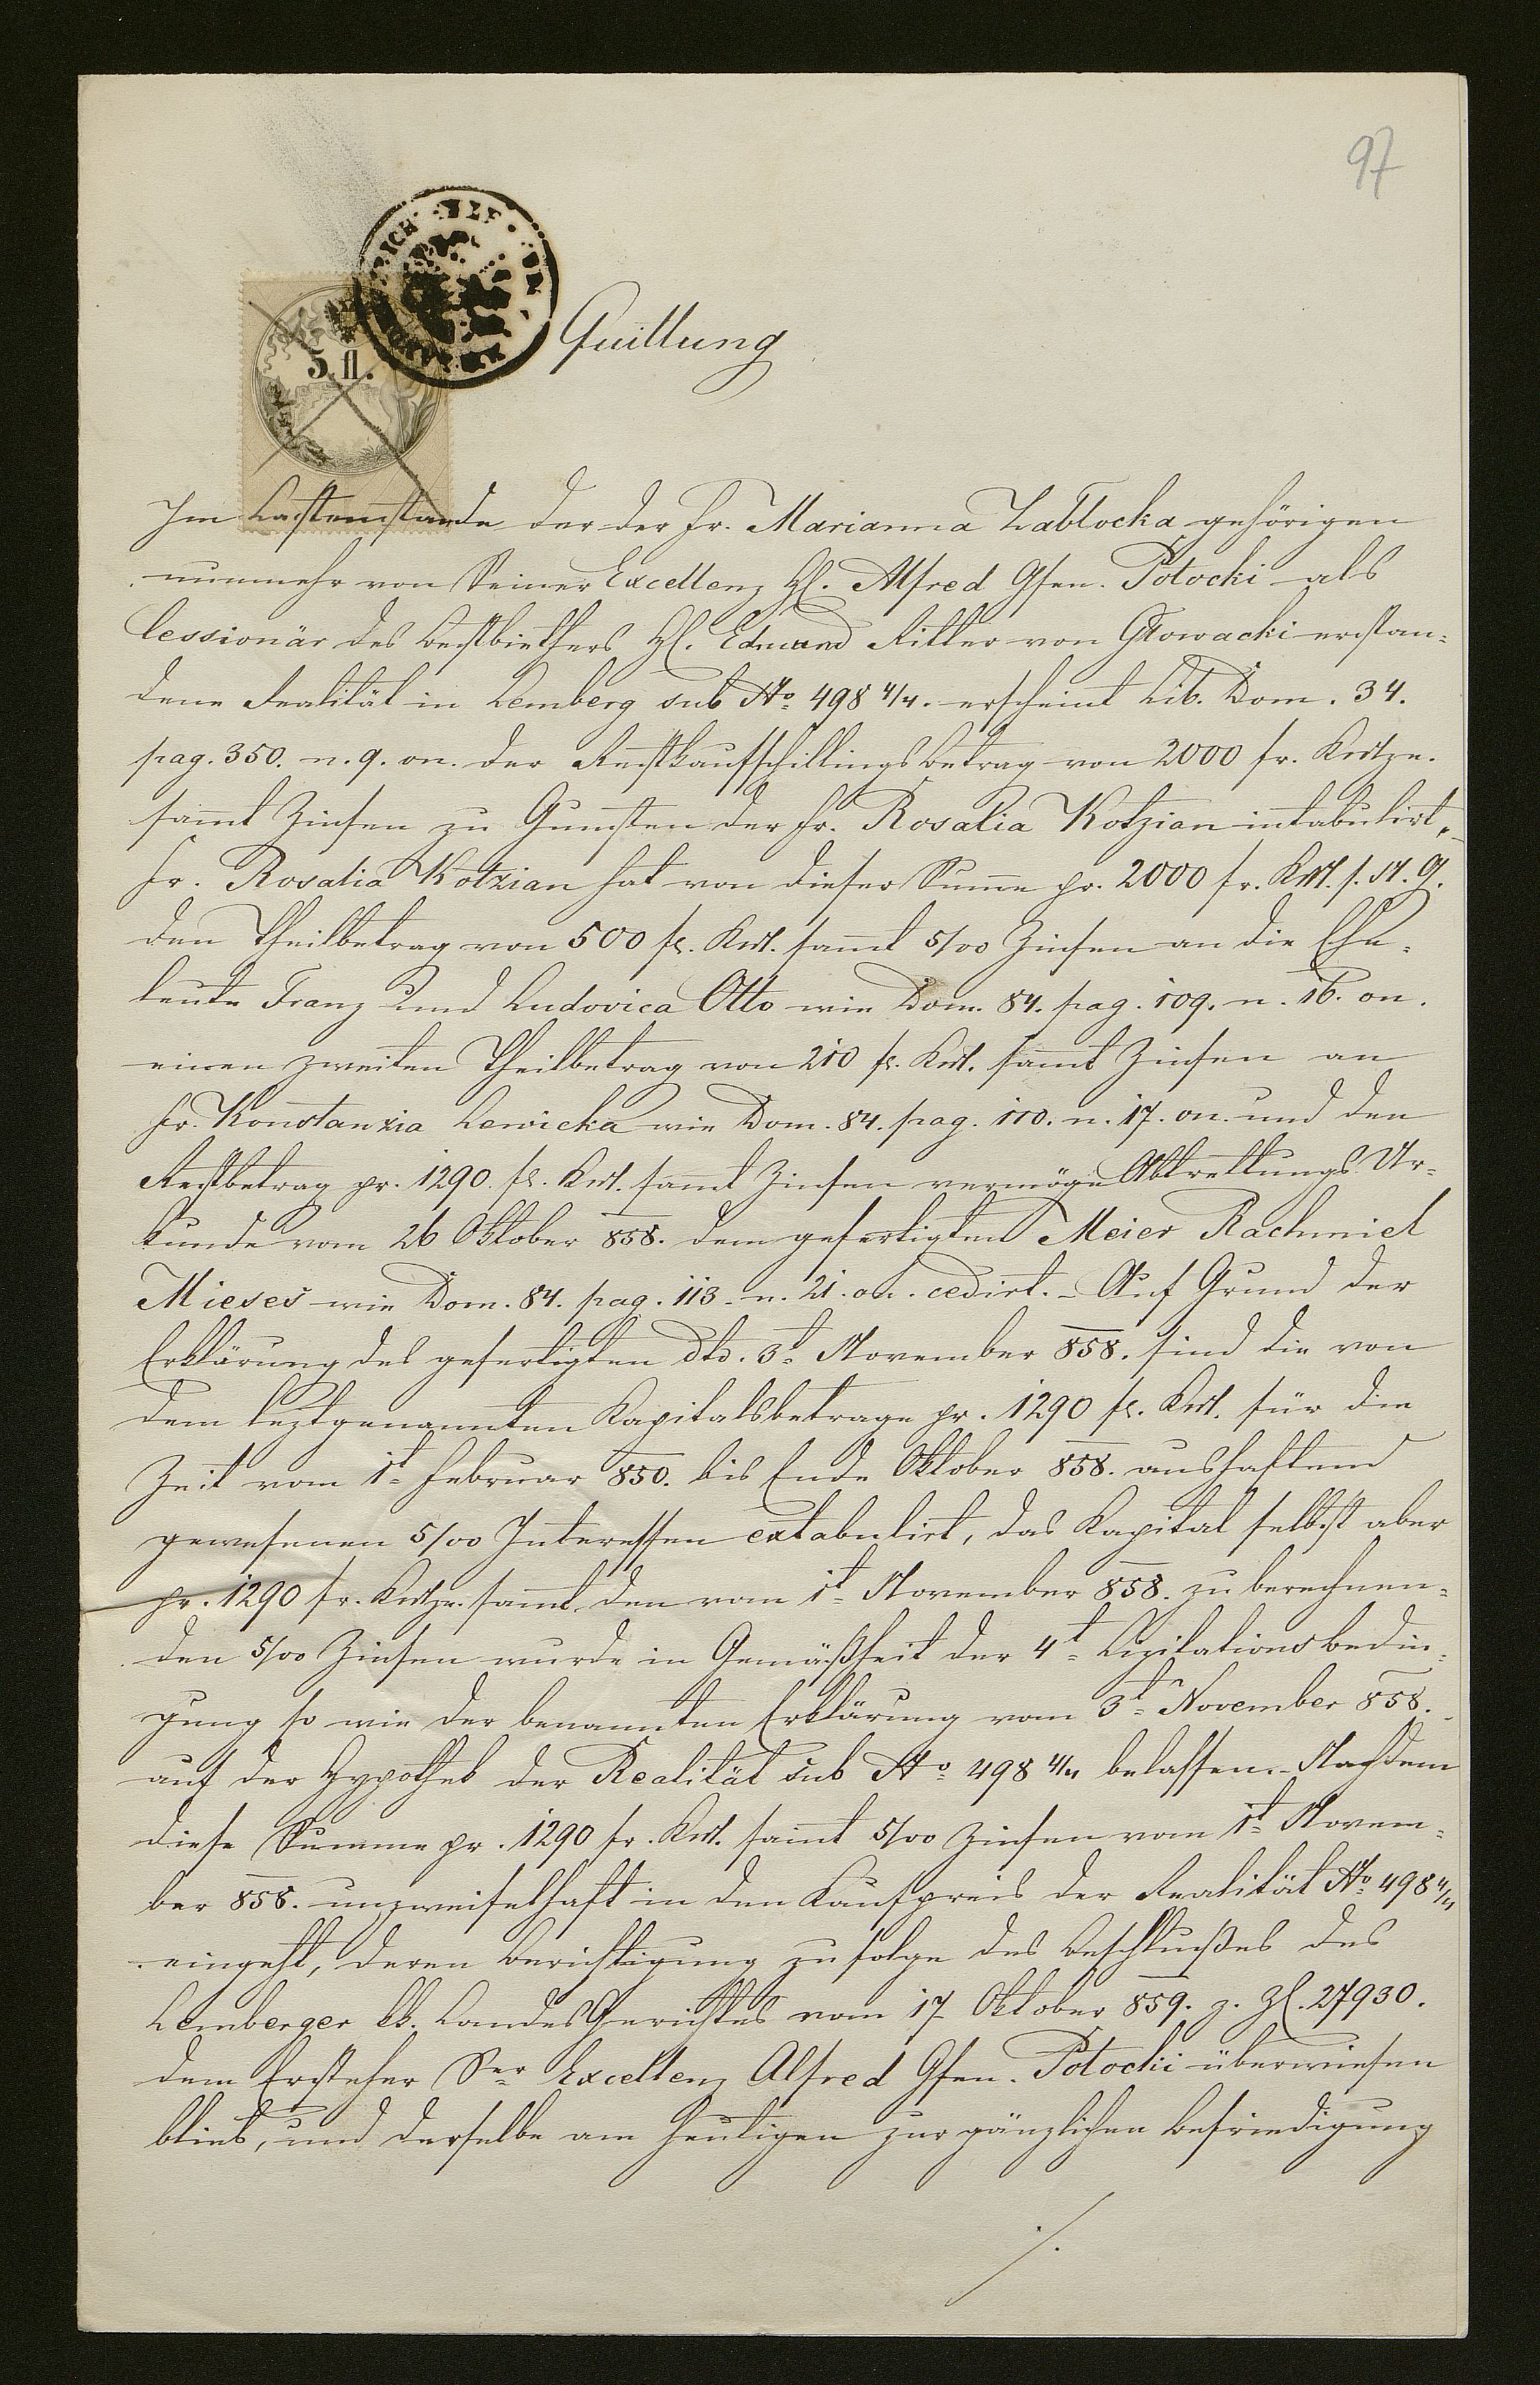 97
5 fl.
Quittung
Im Lastenstande der der Fr. Marianna Zabłocka gehörigen
nunmehr von Seiner Excellenz H. Alfred Gfen. Potocki als
Cessionär des Bestbiethers H. Edmund Ritter von Głowacki erstan-
dene Realität in Lemberg sub No 498 4/4. erscheint Lib. Dom. 34.
pag. 350. n. 9. on. der Restkaufschillings Betrag von 2000 fr. KMtze.
sammt Zinsen zu Gunsten der Fr. Rosalia Kotzian intabulirt,
Fr. Rosalia Kotzian hat von dieser Summe pr. 2000 fr. KM. s. N. G.
den Theilbetrag von 500 fr. KM. sammt 5/00 Zinsen an die Ehe-
leute Franz und Ludovica Otto wie Dom. 84. pag. 109. n. 16. on.
einen zweiten Theilbetrag von 210 fr. KM. sammt Zinsen an
Fr. Konstanzia Lewicka wie Dom. 84. pag. 110. n. 17. on. und den
Restbetrag pr. 1290 fr. KM. sammt Zinsen vermöge Abtrettungs Ur-
kunde vom 26 Oktober 858. dem gefertigten Meier Rachmiel
Mieses wie Dom. 84. pag. 113. n. 21. on. cedirt. - Auf Grund der
Erklärung des gefertigten dto. 3t November 858. sind die von
dem leztgenannten Kapitalsbetrage pr. 1290 fr. KM. für die
Zeit vom 1t Februar 850. bis Ende Oktober 858. aushaftend
gewesenen 5/00 Interessen extabulirt, das Kapital selbst aber
pr. 1290 fr. KMtze. sammt den vom 1t November 858. zu berechnen-
den 5/00 Zinsen wurde in Gemäßheit der 4t Lizitationsbedin-
gung so wie der benannten Erklärung vom 3t November 858.
auf der Hypothek der Realität sub No 498 4/4 belassen. - Nachdem
diese Summe pr. 1290 fr. KM. sammt 5/00 Zinsen vom 1t Novem-
ber 858. unzweifelhaft in den Kaufpreis der Realität No 498 4/4
eingeht, deren Berichtigung zu folge des Beschlußes des
Lemberger kk. Landes Gerichtes vom 17 Oktober 859. z. Zl. 27930.
dem Ersteher Ser Excellenz Alfred Gfen. Potocki überwiesen
blieb, und derselbe am heutigen zur gänzlichen Befriedigung
./.